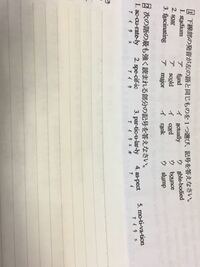 1 下線部の発音が左の語と同じものを1つ選び，記号を答えなさい。
1. stadium ア fjord イ actually ウ able-bodied
2. soar ア scold イ cord ウ bounce
3. fascinating ア major イ task ウ slump
2 次の語の最も強く読まれる部分の記号を答えなさい。
1. ac-cu-rate-ly 2. spe-cif-ic 3. par-tic-u-lar-ly 4. as-pect 5. mo-ti-va-tion
ア イ ウ エ ア イ ウ ア イ ウ エ オ ア イ ア イ ウ エ